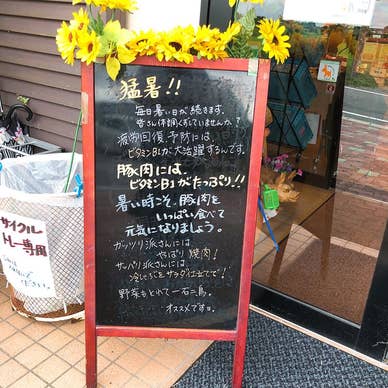 猛暑!!
毎日暑い日が続きます。
皆さん体調くずしていませんか?
疲労回復、予防には
ビタミンB1が大活躍するんです。
豚肉には、
ビタミンB1がたっぷり!!
暑い時こそ、豚肉を
いっぱい食べて
元気になりましょう。
ガッツリ派さんには
やっぱり焼肉!
サッパリ派さんには、
冷しゃぶをサラダ仕立てで!
野菜もとれて一石二鳥。
オススメです。
サイクル
トレー専用